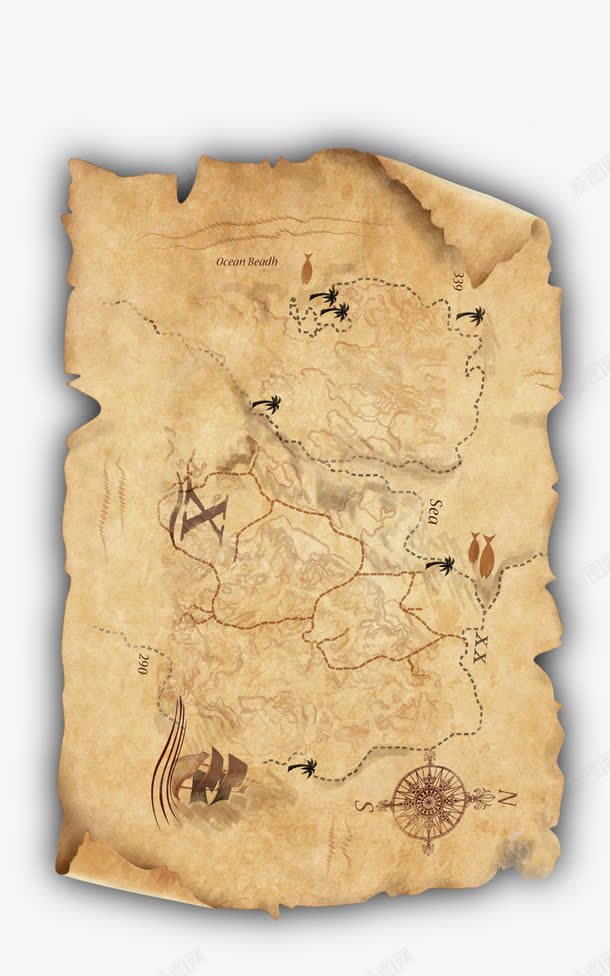 Ocean Beadh
339
X
Sea
XX
290
N
S
新图网